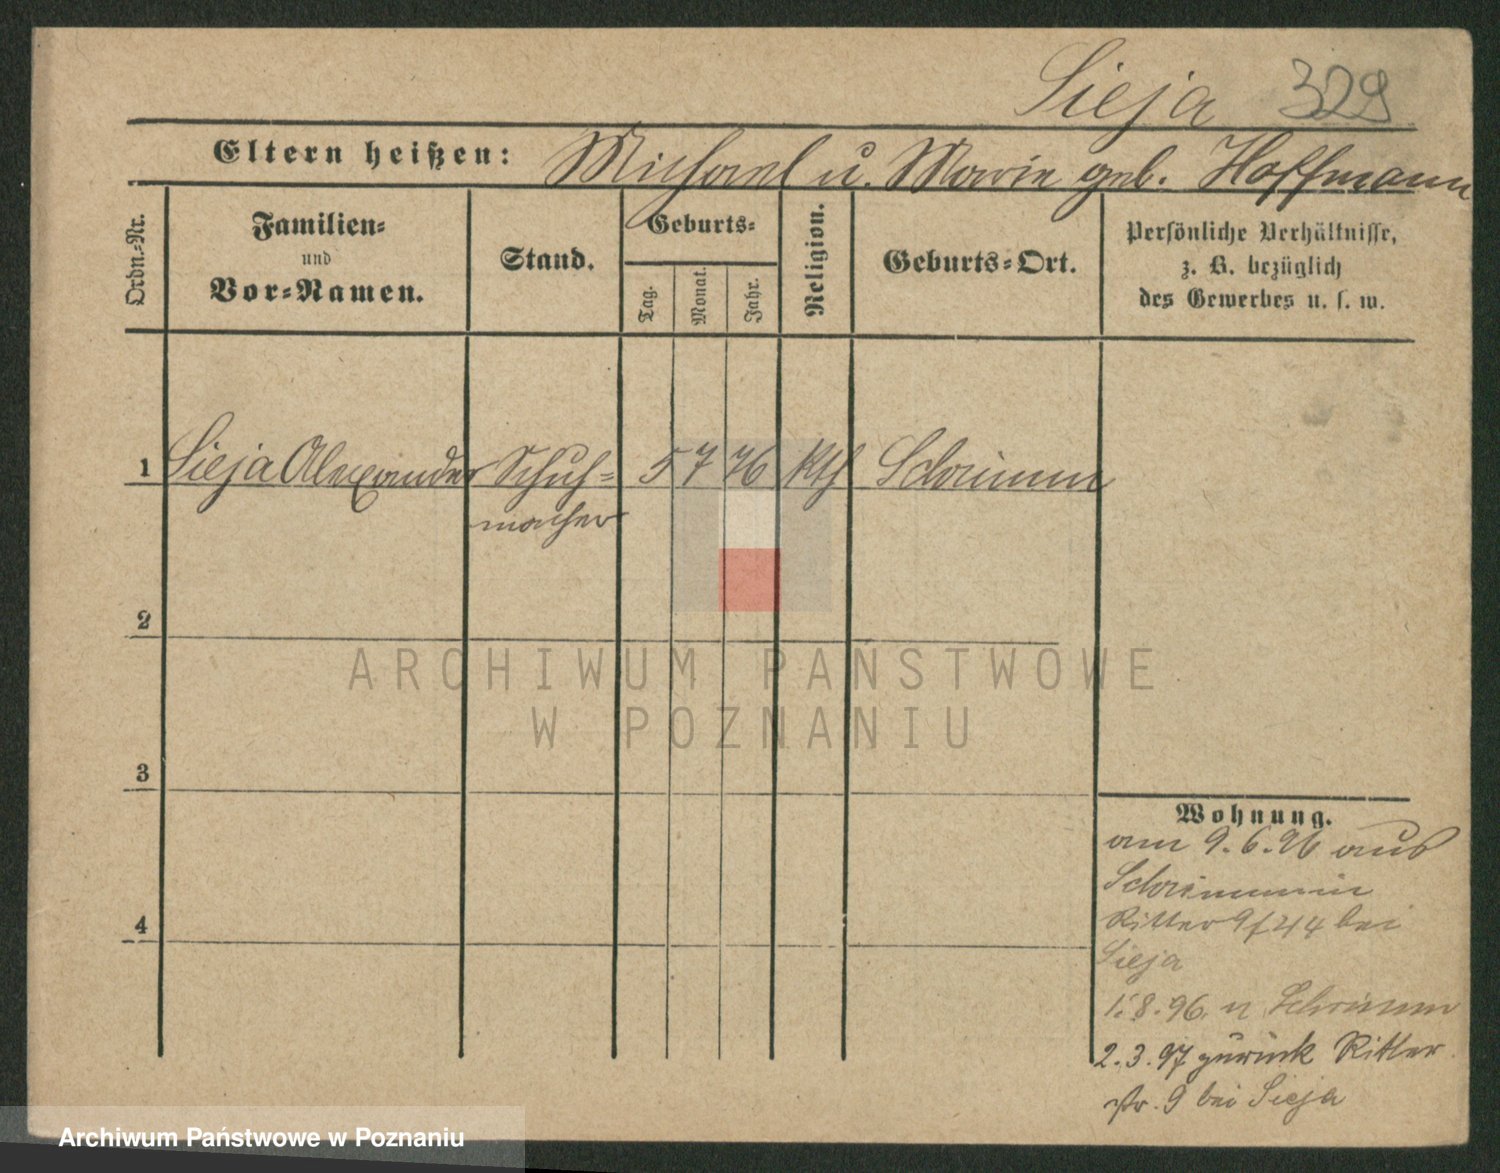 Sieja 329
Eltern heißen: Michael u. Marie geb. Hoffmann
Ordn.-Nr.
Familien-
und
Vor-Namen.
Stand.
Geburts-
Tag.
Monat.
Jahr.
Religion.
Geburts-Ort.
Persönliche Verhältnisse,
z. B. bezüglich
des Gewerbes u. s. w.
1 Sieja Alexander Schuh- 5 7 76 kth Schrimm
macher
2
ARCHIWUM PAŃSTWOWE
W POZNANIU
3
4
Wohnung.
am 9.6.96 aus
Schrimm in
Ritter 9/ 44 bei
Sieja
1.8.96. n Schrimm
2.3.97 zurück Ritter
str. 9 bei Sieja
Archiwum Państwowe w Poznaniu